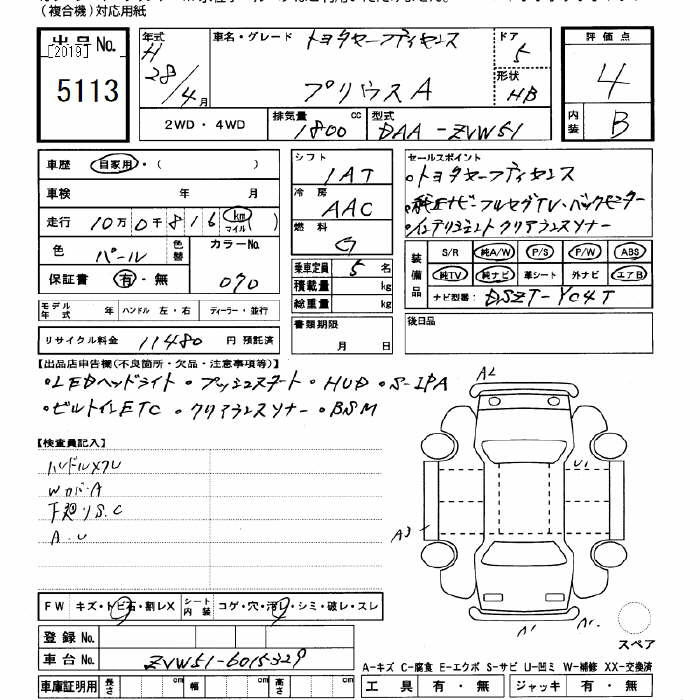 (複合機)対応用紙
出品No.
[2019]
5113
年式 H 28/4月
車名・グレード トヨタセーフティセンス
プリウスA
ドア 5
形状 HB
評価点 4
内装 B
2WD・4WD
排気量 1800 cc
型式 DAA-ZVW51
車歴 自家用・( )
車検 年 月
走行 10万0千816 km マイル
色 パール 色替 カラーNo. 070
保証書 有・無
シフト IAT
冷房 AAC
燃料 G
乗車定員 5名
積載量 kg
総重量 kg
セールスポイント
・トヨタセーフティセンス
・純正ナビ・フルセグTV・バックモニター
・インテリジェントクリアランスソナー
装備品 S/R 純A/W P/S P/W ABS
純TV 純ナビ 革シート 外ナビ エアB
ナビ型番: DSZT-YC4T
モデル年式 年 ハンドル 左・右 ディーラー・並行
リサイクル料金 11480 円 預託済
書類期限 月 日
後日品
【出品店申告欄(不良箇所・欠品・注意事項等)】
・LEDヘッドライト・プッシュスタート・HUD・S-IPA
・ビルトインETC・クリアランスソナー・BSM
【検査員記入】
ハンドルスレ
Wカバー A
下廻りS.C
A.U
A2
U1
A3
A1
A1
スペア
FW キズ・トビ石・割レX シート内装 コゲ・穴・汚レ・シミ・破レ・スレ
登録No.
車台No. ZVW51-6015329
A-キズ C-腐食 E-エクボ S-サビ U-凹ミ W-補修 XX-交換済
車庫証明用 長さ cm 幅 cm 高さ cm
工具 有・無 ジャッキ 有・無